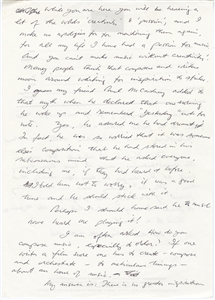 While you are here you will be hearing a
lot of the words creativity & passion, and I
make no apologies for mentioning them again,
for all my life I have had a passion for music
And you can't make music without creativity.
Many people think that composers and writers
moon around waiting for inspiration to strike
as they found. And McCartney added to
that myth when he declared that one morning
he woke up and remembered Yesterday with
his "Yes, he assured me he had dreamed it
In fact he was so worried that it was someone
else's composition that he had stored in his
subconscious mind that he asked everyone,
including me, if they had heard it before
I told him not to worry, it was a good
tune and he should stick with it
Perhaps I should
have heard me playing it!
I am often asked How do you
compose music, especially to order? If one
writes a film score one has to create - compose
and orchestrate - to meticulous timings -
about an hour of music.
My answer is: There is no greater inspiration